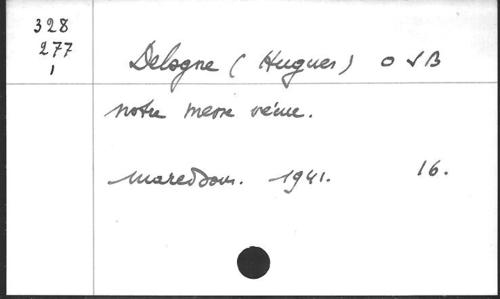 328
277
1
Delogne (Hugues) OSB
Notre messe vécue.
Maredsous. 1941. 16.